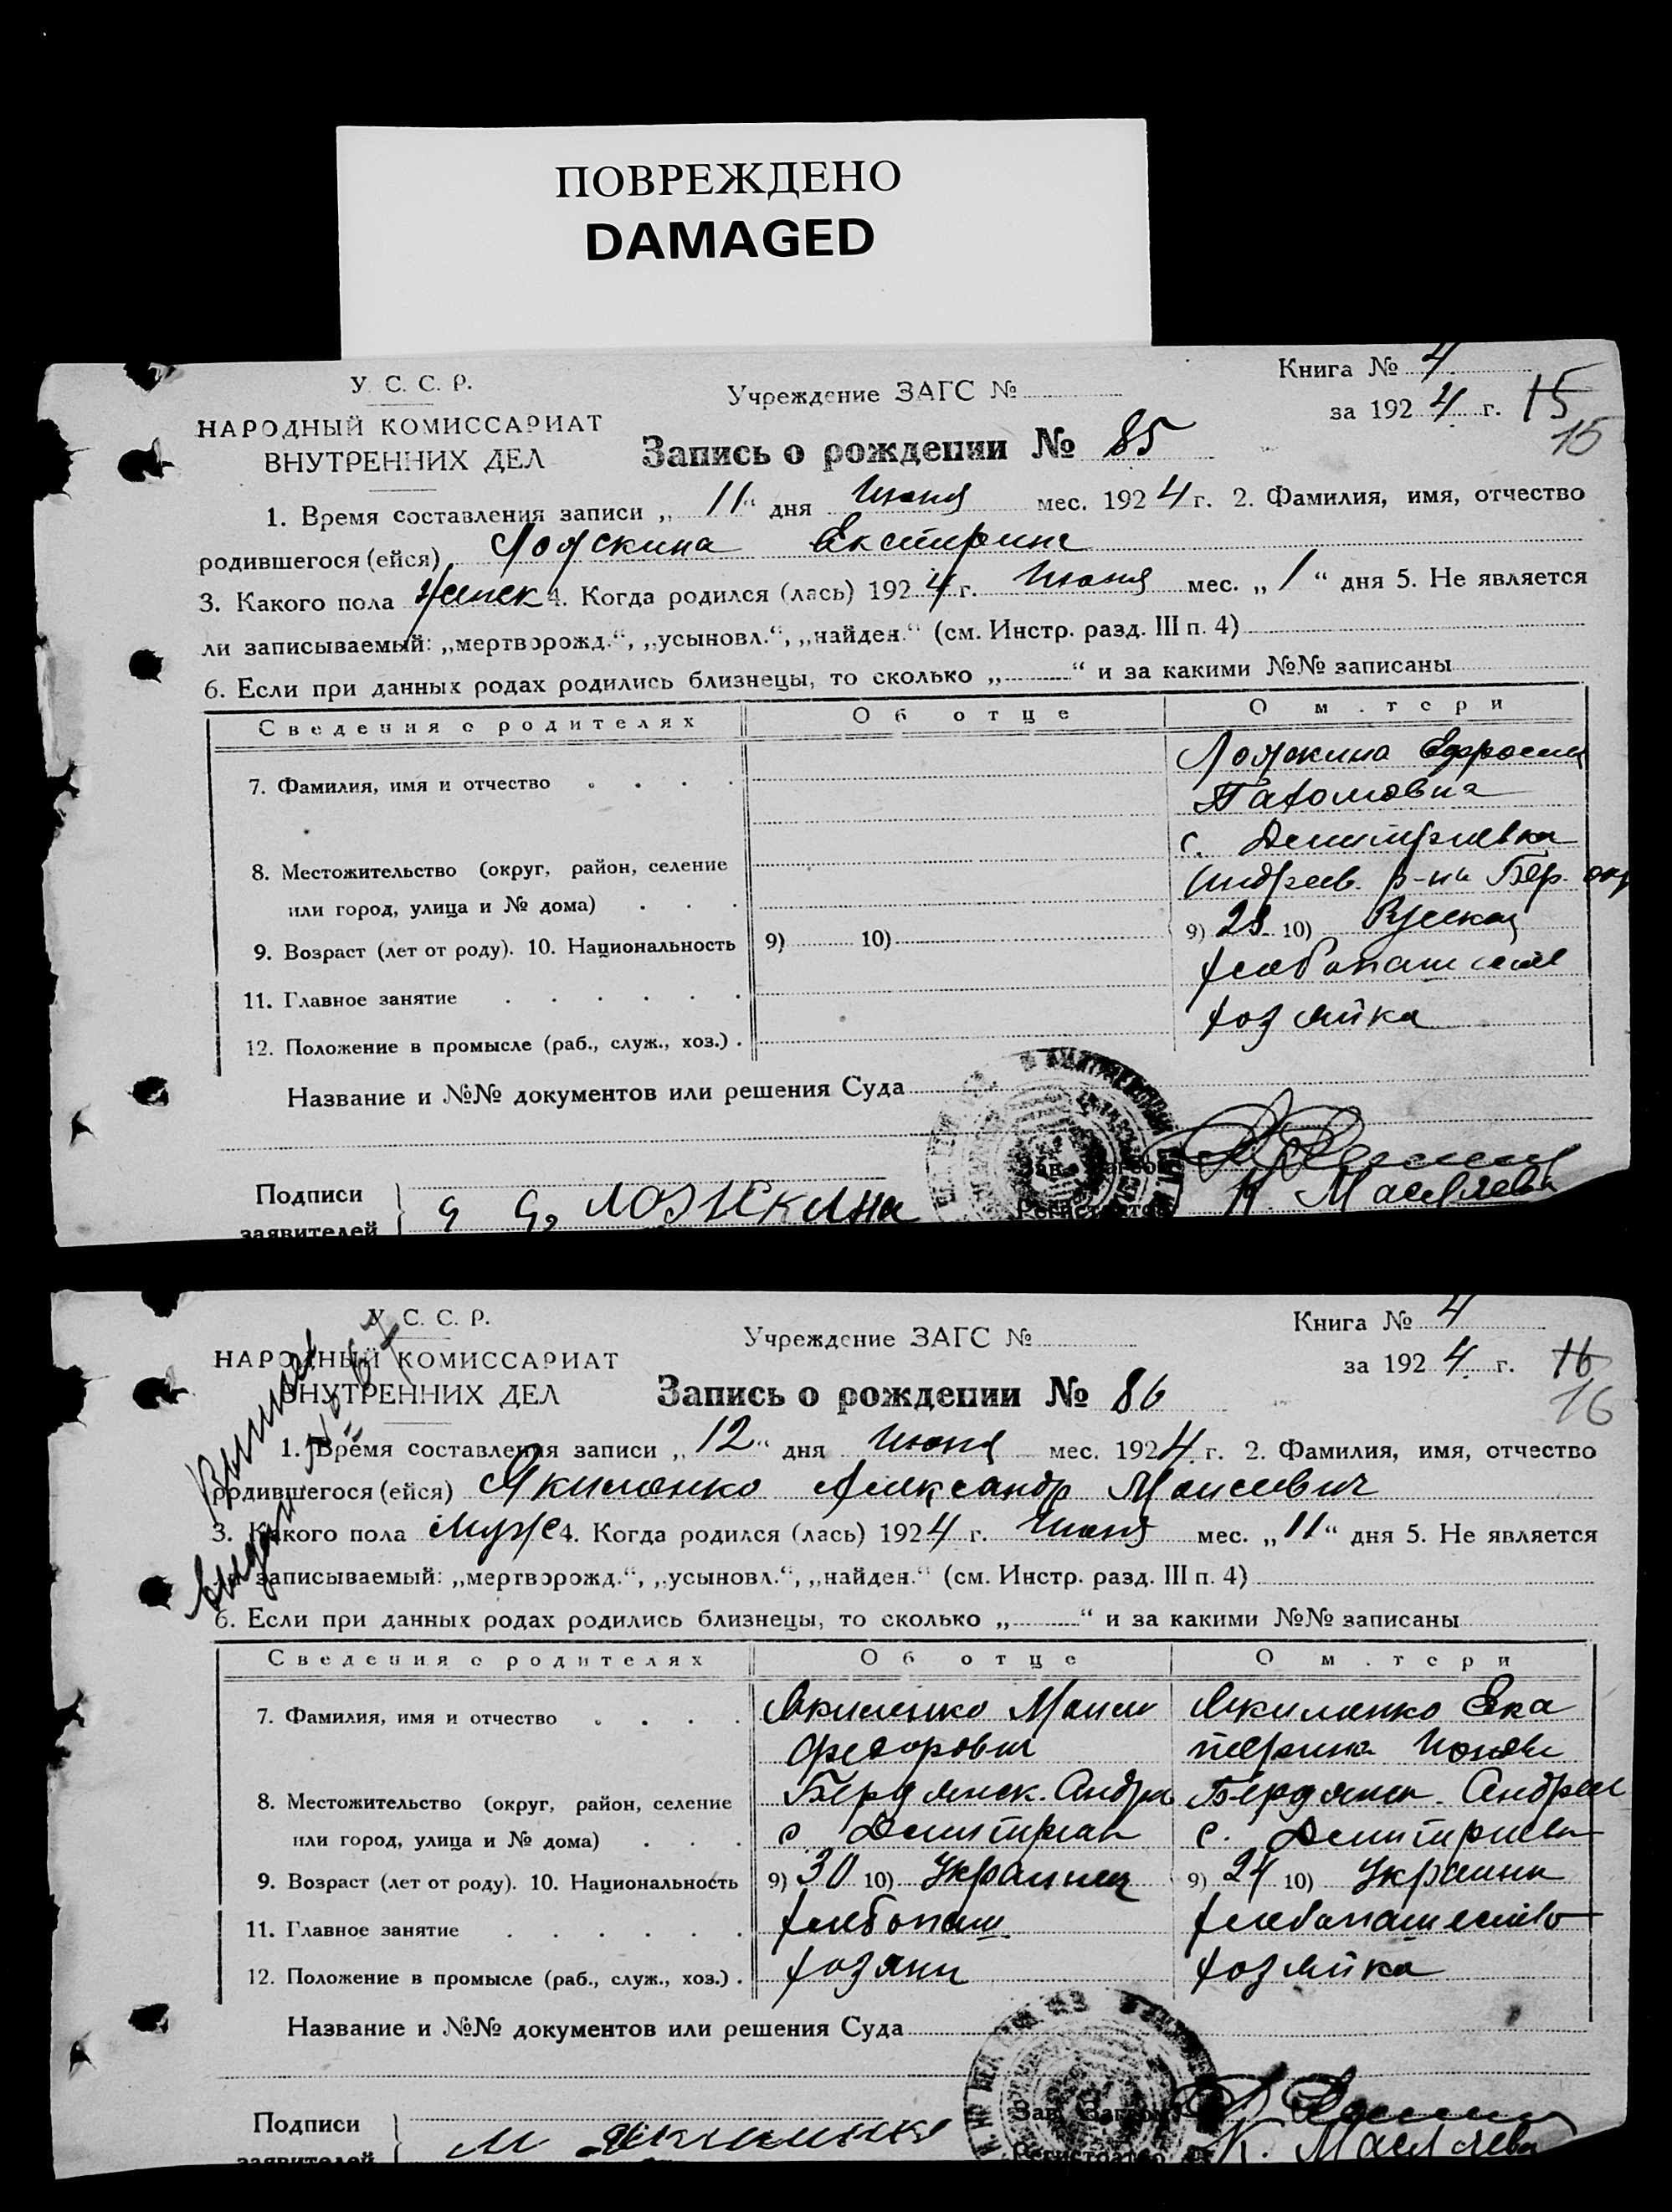 ПОВРЕЖДЕНО
DAMAGED
У. С. С. Р.
НАРОДНЫЙ КОМИССАРИАТ
ВНУТРЕННИХ ДЕЛ
Учреждение ЗАГС №
Книга № 4
за 1924 г. 15
15
Запись о рождении № 85
1. Время составления записи „11“ дня Июня мес. 1924 г. 2. Фамилия, имя, отчество
родившегося (ейся) Ложкина
3. Какого пола женск 4. Когда родился (лась) 1924 г. Июня мес. „1“ дня 5. Не является
ли записываемый: „мертворожд.“, „усыновл.“, „найден.“ (см. Инстр. разд. III п. 4)
6. Если при данных родах родились близнецы, то сколько „ “ и за какими №№ записаны
Сведения о родителях Об отце О матери
7. Фамилия, имя и отчество Ложкина
Пахомовна
8. Местожительство (округ, район, селение с. Дмитриевка
или город, улица и № дома) Андреев. р-на Бер. окр
9. Возраст (лет от роду). 10. Национальность 9) 10) 9) 28 10) Русская
11. Главное занятие
12. Положение в промысле (раб., служ., хоз.) хозяйка
Название и №№ документов или решения Суда
Зав. Загсом
Регистратор
Подписи
заявителей Ложкина
У. С. С. Р.
НАРОДНЫЙ КОМИССАРИАТ
ВНУТРЕННИХ ДЕЛ
Учреждение ЗАГС №
Книга № 4
за 1924 г. 16
16
Запись о рождении № 86
1. Время составления записи „12“ дня Июня мес. 1924 г. 2. Фамилия, имя, отчество
родившегося (ейся) Якименко Александр Моисеевич
3. Какого пола мужс 4. Когда родился (лась) 1924 г. Июня мес. „11“ дня 5. Не является
ли записываемый: „мертворожд.“, „усыновл.“, „найден.“ (см. Инстр. разд. III п. 4)
6. Если при данных родах родились близнецы, то сколько „ “ и за какими №№ записаны
Сведения о родителях Об отце О матери
7. Фамилия, имя и отчество Якименко Моисей Якименко Ека
Федорович терина
8. Местожительство (округ, район, селение Бердянск. Андре Бердянск. Андреев
или город, улица и № дома) с Дмитриев с. Дмитриевка
9. Возраст (лет от роду). 10. Национальность 9) 30 10) Украинец 9) 24 10) Украинка
11. Главное занятие хлебопаш. хлебопашество
12. Положение в промысле (раб., служ., хоз.) хозяин хозяйка
Название и №№ документов или решения Суда
Зав. Загсом
Регистратор
Подписи
заявителей М Якименко